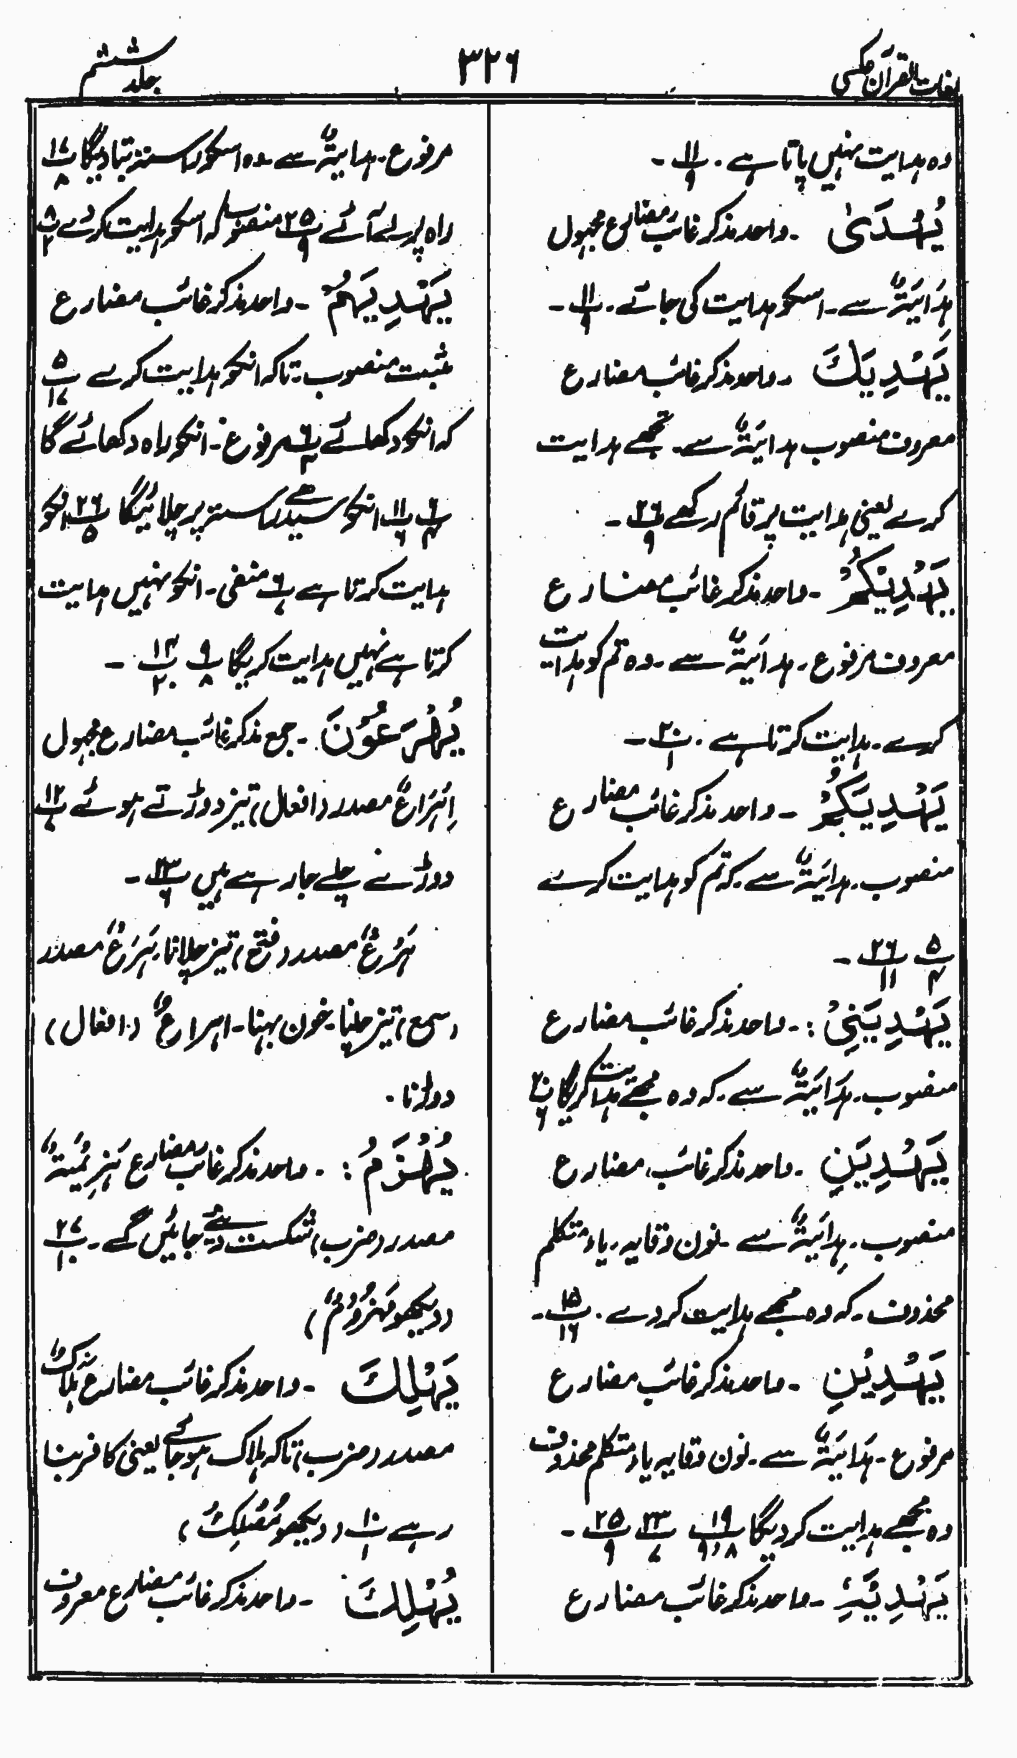 لغات القرآن عکسی
۳۲۶
جلد ششم
وہ ہدایت نہیں پاتا ہے۔ پ۱۱/۹ ۔
يُهْدَىٰ ۔ واحد مذکر غائب مضارع مجہول
هِدَايَةٌ سے ۔ اسکو ہدایت کی جائے۔ پ۱۱/۹ ۔
يَهْدِيَكَ ۔ واحد مذکر غائب مضارع
معروف منصوب هِدَايَةٌ سے۔ تجھے ہدایت
کرے یعنی ہدایت پر قائم رکھے پ۲۶/۹ ۔
يَهْدِيْكُمْ ۔ واحد مذکر غائب مضارع
معروف مرفوع۔ هِدَايَةٌ سے ۔ وہ تم کو ہدایت
کرے۔ ہدایت کرتا ہے۔ پ۲۰/۱ ۔
يَهْدِيَكُمْ ۔ واحد مذکر غائب مضارع
منصوب۔ هِدَايَةٌ سے۔ کہ تم کو ہدایت کرے
پ۵/۴ پ۲۶/۱۱ ۔
يَهْدِيَنِيْ :۔ واحد مذکر غائب مضارع
منصوب۔ هِدَايَةٌ سے۔ کہ وہ مجھے ہدایت کریگا پ۲۰/۶
يَهْدِيَنِ ۔ واحد مذکر غائب، مضارع
منصوب۔ هِدَايَةٌ سے ۔ نون وقایہ۔ یاء متکلم
محذوف۔ کہ وہ مجھے ہدایت کردے۔ پ۱۵/۱۶ ۔
يَهْدِيْنِ ۔ واحد مذکر غائب مضارع
مرفوع۔ هِدَايَةٌ سے۔ نون وقایہ یاء متکلم محذوف
وہ مجھے ہدایت کردیگا پ۱۹/۹،۸ پ۲۳/۷ پ۲۵/۹ ۔
يَهْدِيْهِ ۔ واحد مذکر غائب مضارع
مرفوع۔ هدايةٌ سے۔ وہ اسکو راستہ بتا دیگا پ۱۷/۸
راہ پر لے آئے پ۲۵/۹ منصوب کہ اسکو ہدایت کردے پ۸/۲
يَهْدِيَهُمْ ۔ واحد مذکر غائب مضارع
مثبت منصوب۔ تاکہ انکو ہدایت کرے پ۵/۱۷
کہ انکو دکھائے پ۶/۴ مرفوع۔ انکو راہ دکھائے گا
پ۶/۴ پ۱۱/۶ انکو سیدھے راستہ پر چلائیگا پ۲۶/۵ انکو
ہدایت کرتا ہے پ۶ منفی۔ انکو نہیں ہدایت
کرتا ہے نہیں ہدایت کریگا پ۹/۸ پ۱۴/۲۰ ۔
يُهْرَعُوْنَ ۔ جمع مذکر غائب مضارع مجہول
اِهْرَاعٌ مصدر (افعال) تیز دوڑتے ہوئے پ۱۲/۷
دوڑے چلے جارہے ہیں پ۲۳/۶ ۔
هَرْعٌ مصدر (فتح) تیز چلانا۔ هَرَعٌ مصدر
(سمع) تیز چلنا۔ خون بہنا۔ اهراعٌ (افعال)
دوڑنا۔
يُهْزَمُ :۔ واحد مذکر غائب مضارع هَزِيْمَةٌ
مصدر (ضرب) شکست دیئے جائیں گے۔ پ۲۷/۱۰
(دیکھو مَهْزُوْمٌ)
يَهْلِكَ ۔ واحد مذکر غائب مضارع هَلَاكٌ
مصدر (ضرب) تاکہ ہلاک ہو جائے یعنی کافر بنا
رہے پ۱۰/۱ (دیکھو مُهْلِكٌ)
يُهْلِكَ ۔ واحد مذکر غائب مضارع معروف